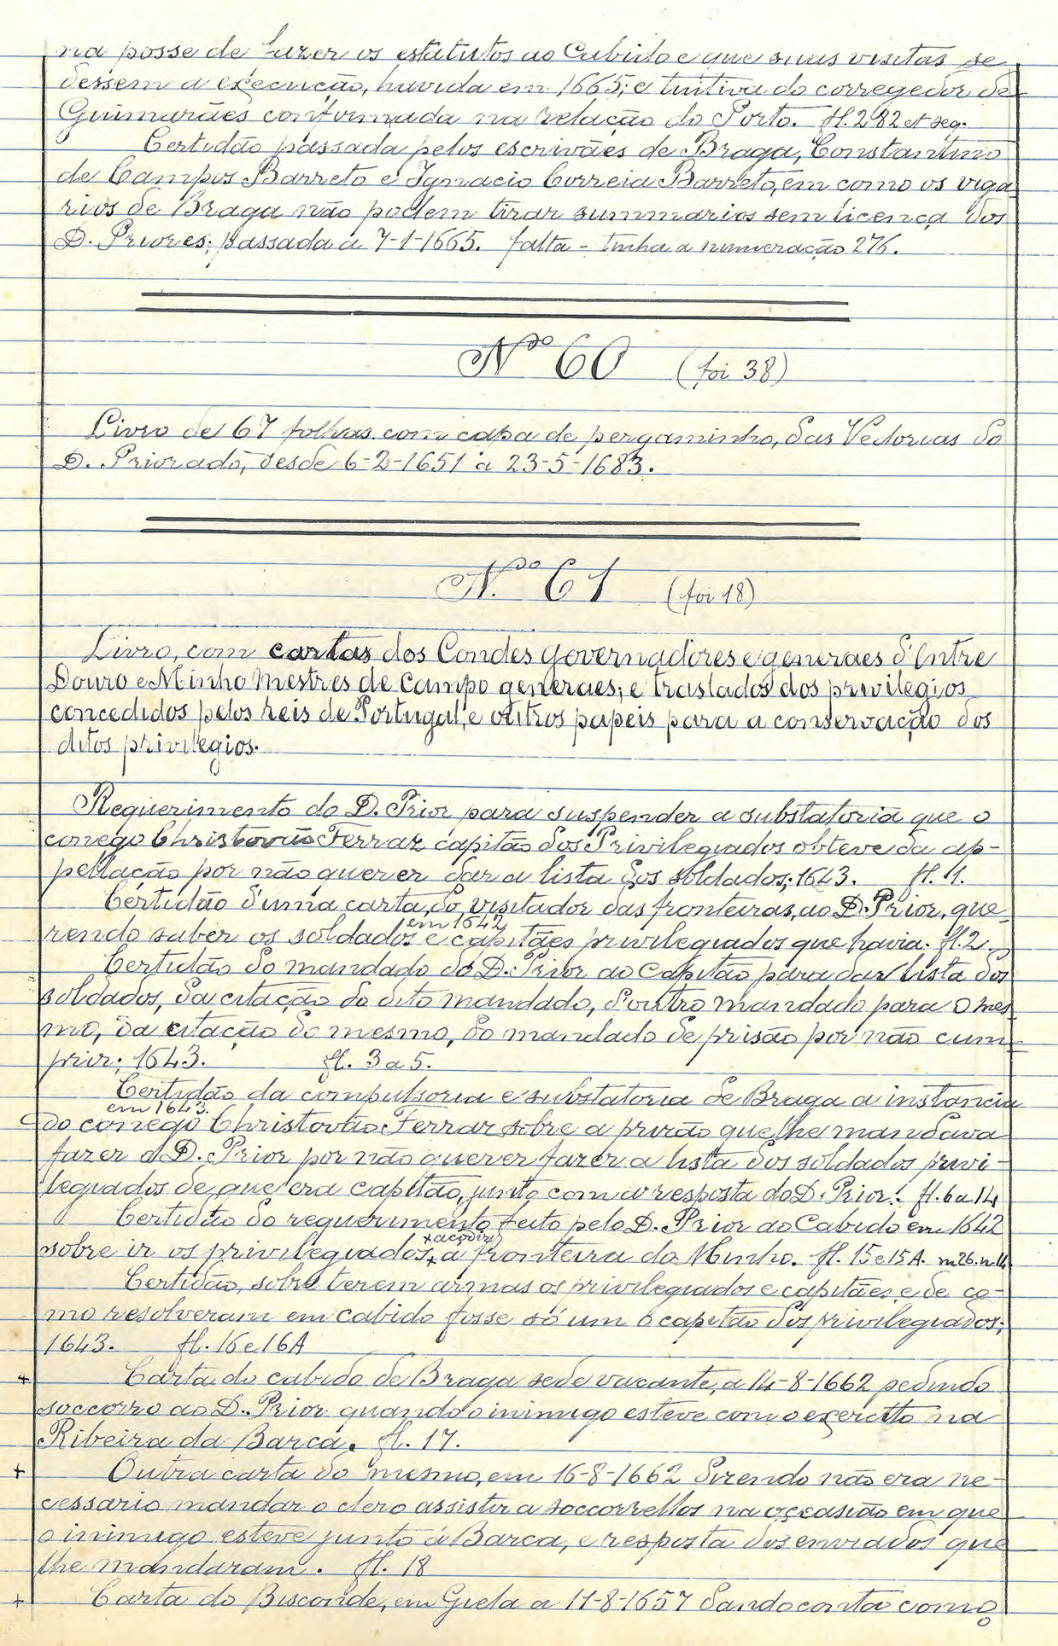 na posse de fazer os estatutos ao Cabido e que suas visitas se
dessem a execução, havida em 1665; e tuitiva do corregedor de
Guimarães confirmada na relação do Porto. fl. 282 et seg.
Certidão passada pelos escrivães de Braga, Constantino
de Campos Barreto e Ignacio Correia Barreto, em como os viga-
rios de Braga não podem tirar summarios sem licença dos
D. Priores; passada a 7-1-1665. falta - tinha a numeração 276.
Nº 60 (foi 38)
Livro de 67 folhas com capa de pergaminho, das Vedorias do
D. Priorado, desde 6-2-1651 a 23-5-1683.
N.º 61 (foi 18)
Livro, com cartas dos Condes governadores e generaes d'Entre
Douro e Minho mestres de campo generaes, e traslados dos privilegios
concedidos pelos reis de Portugal, e outros papeis para a conservação dos
ditos privilegios.
Requerimento do D. Prior para suspender a substatoria que o
conego Christovão Ferraz capitão dos Privilegiados obteve da ap-
pellação por não querer dar a lista dos soldados; 1643. fl. 1.
Certidão d'uma carta, do visitador das fronteiras, ao D. Prior, que-
em 1642
rendo saber os soldados e capitães privilegiados que havia. fl. 2.
Certidão do mandado do D. Prior ao Capitão para dar lista dos
soldados, da citação do dito mandado, d'outro mandado para o mes-
mo, da citação do mesmo, do mandado de prisão por não cum-
prir; 1643. fl. 3 a 5.
Certidão da compulsoria e substatoria de Braga a instancia
em 1643.
do conego Christovão Ferraz sobre a prizão que lhe mandava
fazer o D. Prior por não querer fazer a lista dos soldados privi-
legiados de que era capitão, junto com a resposta do D. Prior. fl. 6 a 14
Certidão do requerimento feito pelo D. Prior ao Cabido em 1642
+acodir
sobre ir os privilegiados + a fronteira do Minho. fl. 15 e 15A. m 26. n. 14
Certidão, sobre terem armas os privilegiados e capitães, e de co-
mo resolveram em cabido fosse só um o capitão dos privilegiados;
1643. fl. 16 e 16A
+ Carta do cabido de Braga sede vacante, a 14-8-1662 pedindo
soccorro ao D. Prior quando o inimigo esteve com o exercito na
Ribeira da Barca. fl. 17.
+ Outra carta do mesmo, em 16-8-1662 dizendo não era ne-
cessario mandar o clero assistir a soccorrellos na occasião em que
o inimigo esteve junto á Barca, e resposta dos enviados que
lhe mandaram. fl. 18
+ Carta do Bisconde, em Giela a 11-8-1657 dando conta como